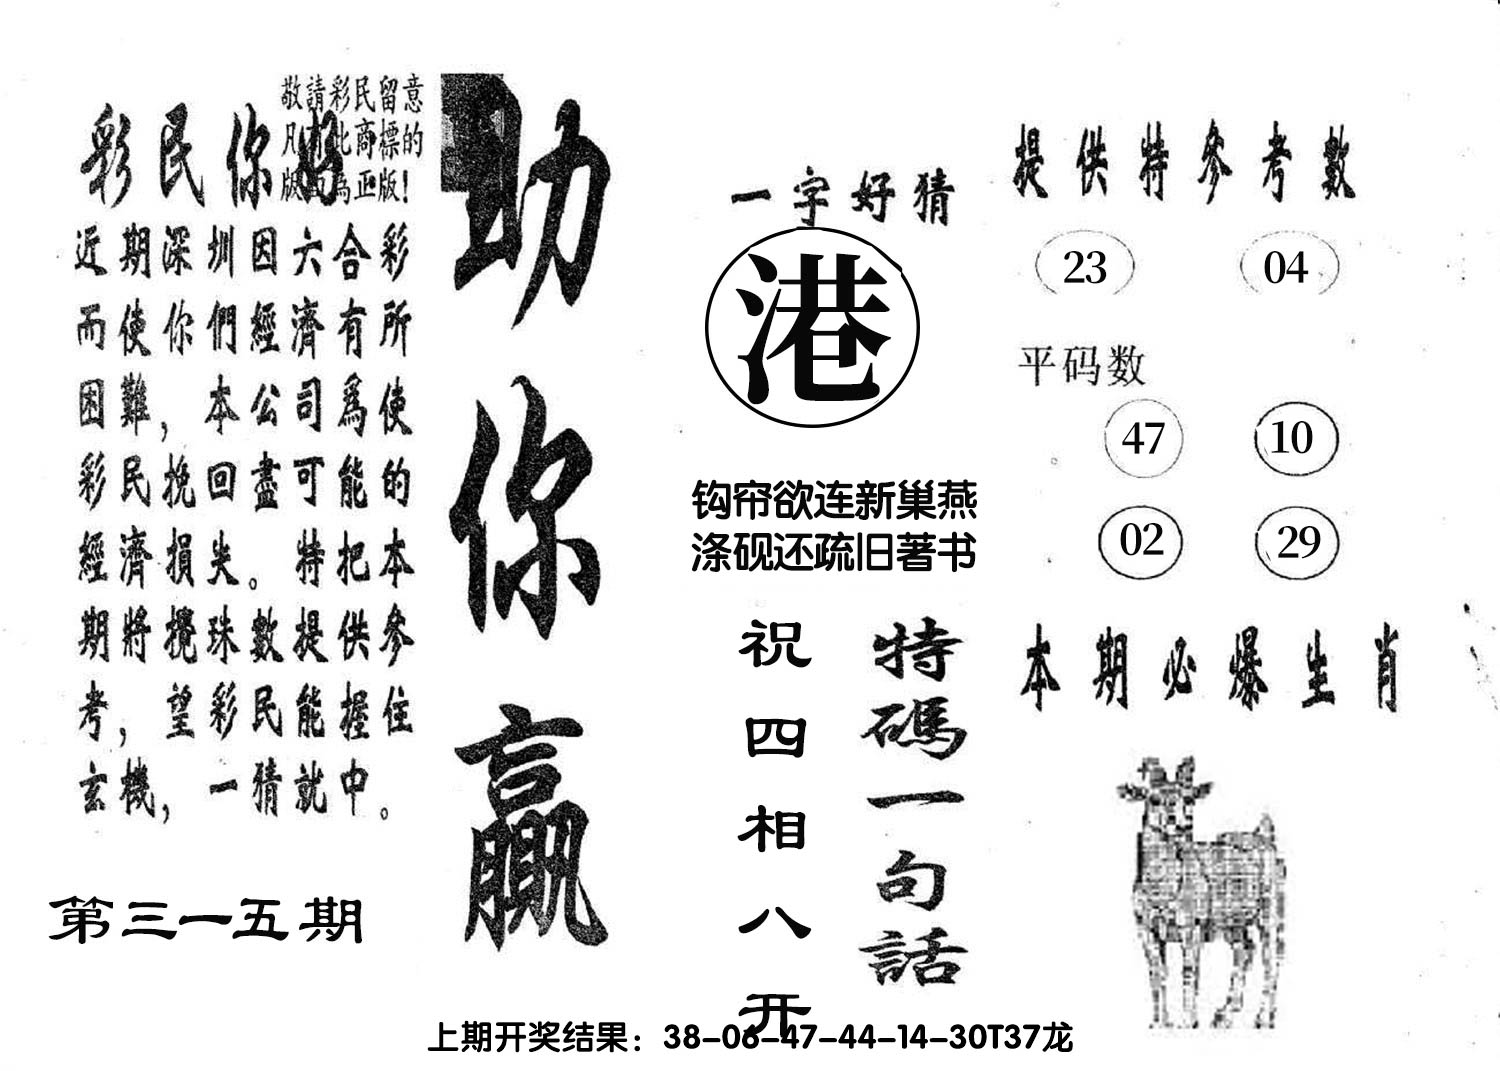 敬請彩民留意
凡有此商標的
版面為正版!
彩民你好
近期深圳因六合彩
而使你們經濟有所
困難，本公司爲使
彩民挽回盡可能的
經濟損失。特把本
期將攪珠數提供參
考，望彩民能握住
玄機，一猜就中。
第三一五期
助你赢
一字好猜
港
钩帘欲连新巢燕
涤砚还疏旧著书
特碼一句話
祝四相八开
提供特参考數
23 04
平码数
47 10
02 29
本期必爆生肖
上期开奖结果：38-06-47-44-14-30T37龙